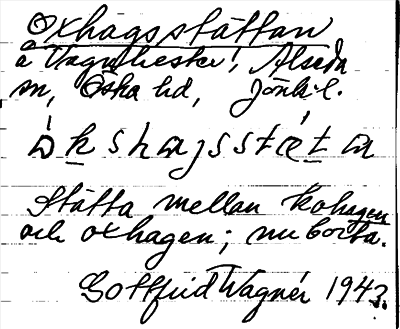 Oxhagsstättan
å Vagnhester, Alseda
sn, Östra hd, Jönk.l.
ꜝokshagsstæta
Stätta mellan kohagen
och oxhagen; nu borta.
Gottfrid Wagnér 1943.